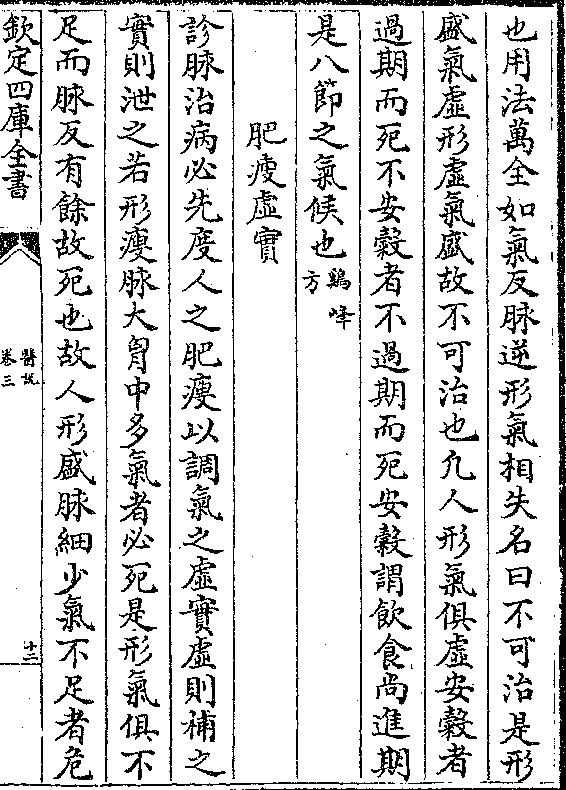 也用法萬全如氣反脉逆形氣相失名曰不可治是形
盛氣虛形虛氣盛故不可治也凡人形氣俱虛安糓者
過期而死不安糓者不過期而死安糓謂飲食尚進期
是八節之氣候也鷄峰方
肥瘦虛實
診脉治病必先度人之肥瘦以調氣之虛實虛則補之
實則泄之若形瘦脉大胷中多氣者必死是形氣俱不
足而脉反有餘故死也故人形盛脉細少氣不足者危
欽定四庫全書
醫說
卷三
十二